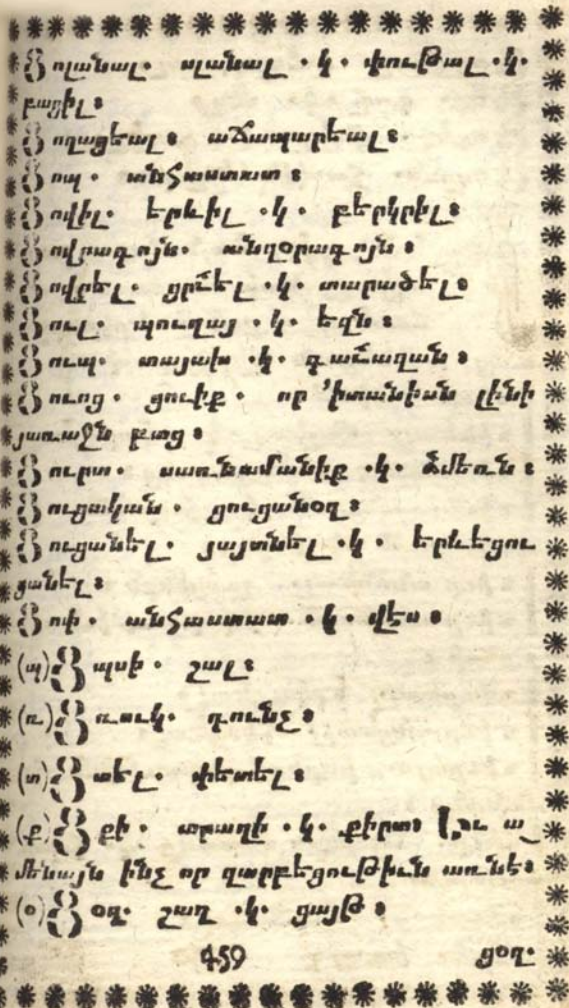 Ցոլանալ. սլանալ .կ. փութալ .կ.
բացիլ։
Ցողացեալ։ աճապարեալ։
Ցոպ. անհաստատ։
Ցովիլ. երևիլ .կ. բերկրիլ։
Ցովրագոյն. անդօրագոյն։
Ցովքել. ցրւել .կ. տարածել։
Ցուլ. պուղայ .կ. եզն։
Ցուպ. տայախ .կ. գաւազան։
Ցուոց. ցուիք. որ ՚իտանխան լինի
յառաջն բաց։
Ցուրտ. սառնամանիք .կ. ձմեռն։
Ցուցական. ցուցանօղ։
Ցուցանել. յայտնել .կ. երևեցու
ցանել։
Ցոփ. անհաստատ .կ. վէս։
(պ) Ցպսի. շալ։
(ռ) Ցռուկ. դունչ։
(տ) Ցտել. փետել։
(ք) Ցքի. արաղի .կ. քիրտ։ Եւ ա
մենայն ինչ որ զարբեցութիւն առնէ։
(օ) Ցօղ. շաղ .կ. ցայթ։
459 ցօղ.